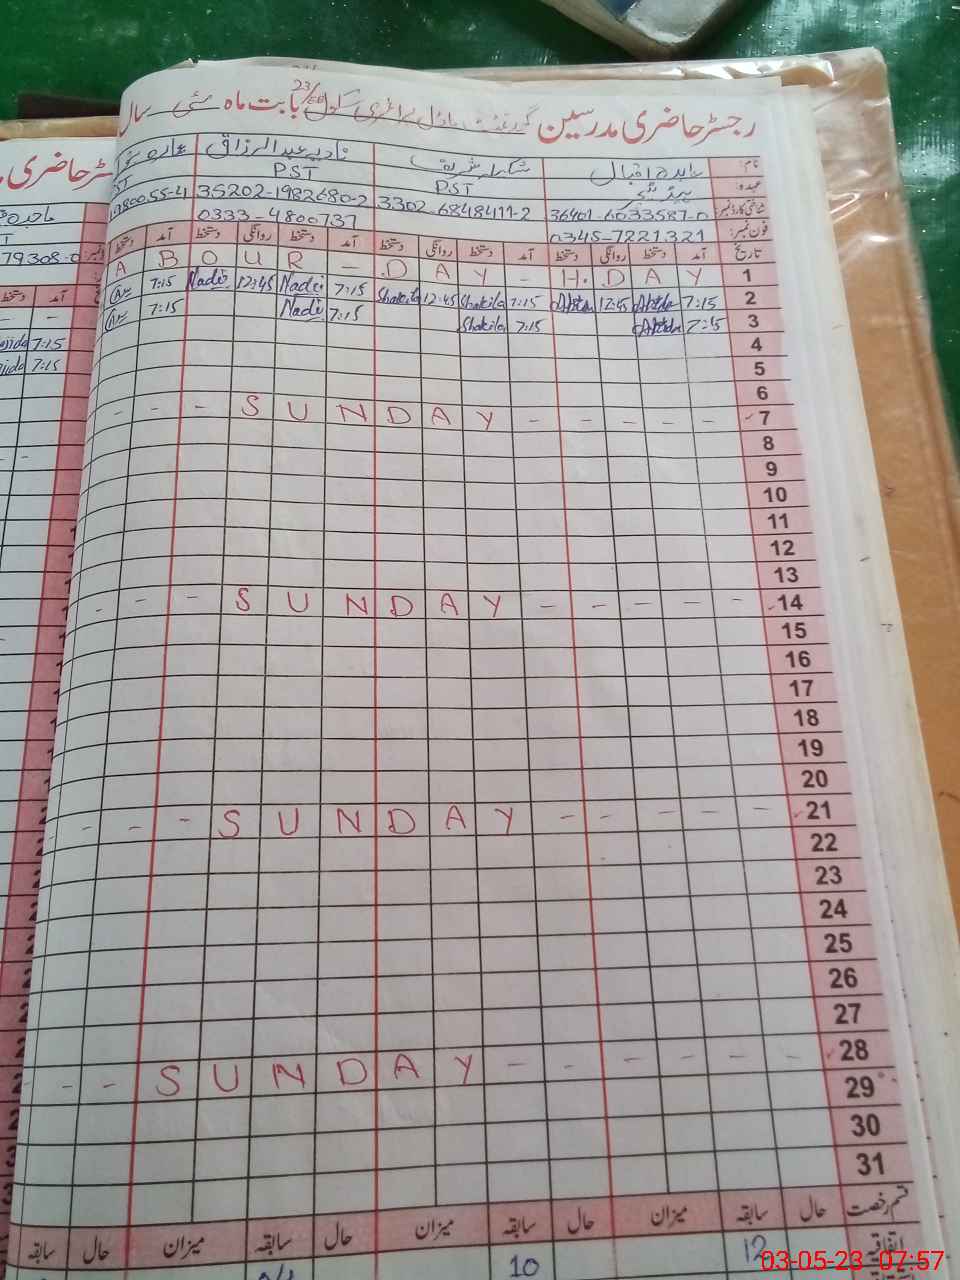 رجسٹر حاضری مدرسین گورنمنٹ ماڈل پرائمری سکول بابت ماہ مئی سال
23/
نام: عابدہ اقبال شکیلہ شریف نادیہ عبدالرزاق
عہدہ: PST PST
شناختی کارڈ نمبر: 36401-6033587-0 3302-6848411-2 35202-1982680-2
فون نمبر: 0345-7221321 0333-4800737
تاریخ آمد دستخط روانگی دستخط آمد دستخط روانگی دستخط آمد دستخط روانگی دستخط آمد دستخط
A B O U R - D A Y - H. D A Y 1
7:15 Nadi 12:45 Nadi 7:15 Shakila 12:45 Shakila 7:15 12:45 7:15 2
7:15 Nadi 7:15 Shakila 7:15 7:15 3
4
5
6
- - - S U N D A Y - - - - - 7
8
9
10
11
12
13
- - - S U N D A Y - - - - - 14
15
16
17
18
19
20
- - - S U N D A Y - - - - - 21
22
23
24
25
26
27
- - - S U N D A Y - - - - - - 28
29
30
31
قسم رخصت حال سابقہ میزان حال سابقہ میزان حال سابقہ میزان حال سابقہ
اتفاقیہ 12 10
رجسٹر حاضری
79308-0
آمد دستخط
7:15
7:15
03-05-23 07:57